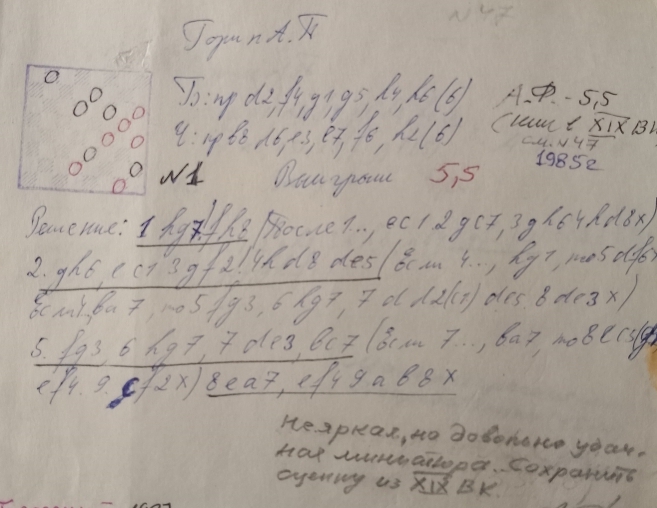 N 47
Горин А.П
Б: пр d2, f4, g1, g5, h4, h6 (6)
Ч: пр b8, d6, e3, e7, f6, h2 (6)
А.Ф. - 5,5
XIX ВК
см. 447
1985г
N1 Выигрыш 5,5
Решение: 1 hg7! fh8 (После 1..., ec1 2 gc7, 3 gh6 4 hd8x)
2. gh6, ec1 3 gf2! 4 hd8 de5 (Если 4..., hg1, то 5 df6x
Если 4, ba7, то 5 fg3, 6 hg7, 7 dd2(c1) dc5. 8 de3x)
5. fg3, 6 hg7, 7 de3, bc7 (Если 7..., ba7, то 8 ec5
ef4. 9. gf2x) 8 ea7, ef4 9 ab8x
Неяркая, но довольно удач-
ная миниатюра. Сохранить
оценку из XIX ВК.